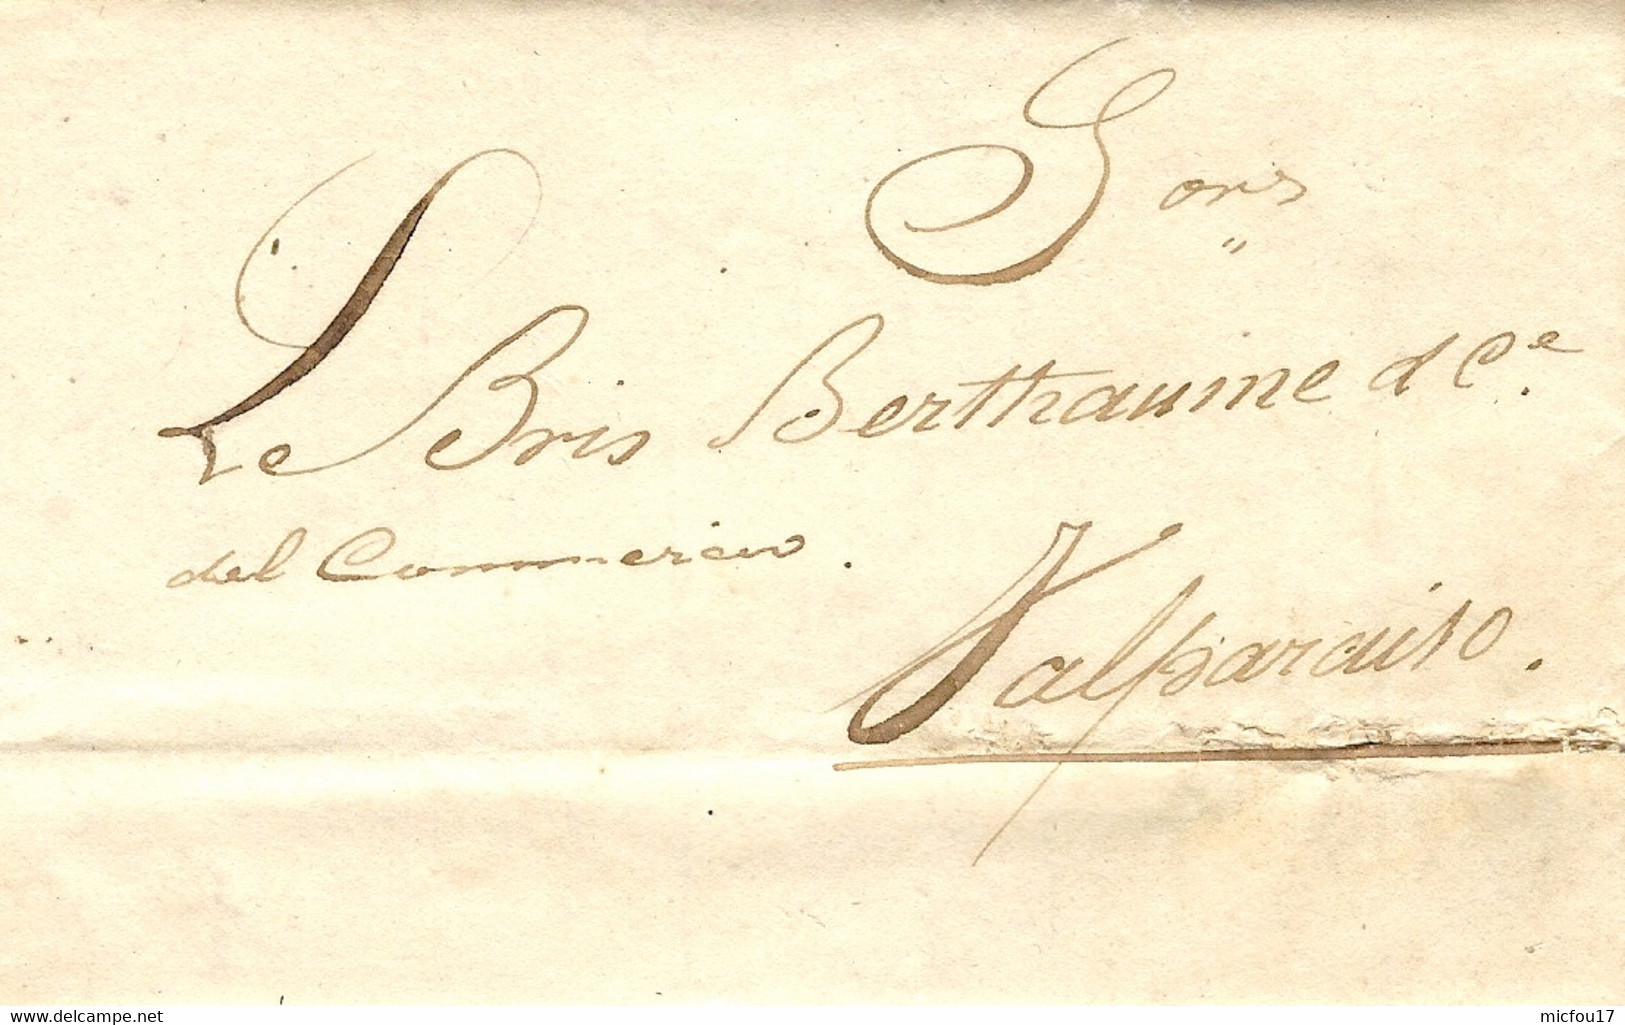 Sors
Le Bris Berthaume d Ce.
del Commercio.
Valparaiso.
www.delcampe.net
micfou17